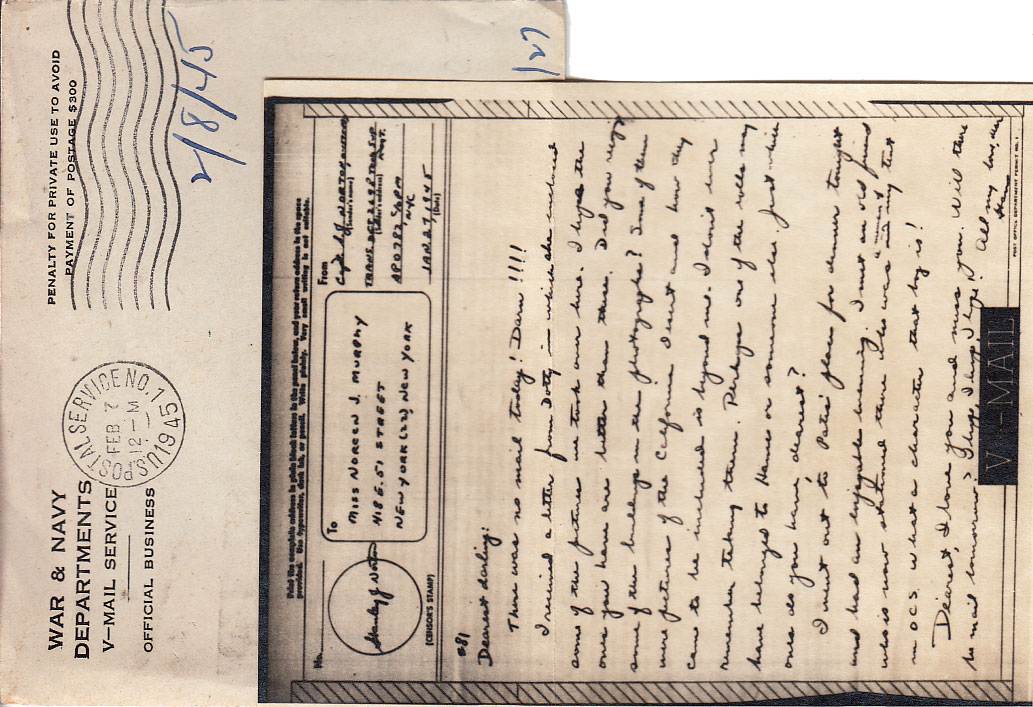 WAR & NAVY
DEPARTMENTS
V-MAIL SERVICE
OFFICIAL BUSINESS
U.S. POSTAL SERVICE NO. 1
FEB 7
12-M
1945
PENALTY FOR PRIVATE USE TO AVOID
PAYMENT OF POSTAGE $300
2/8/45
1/27
Print the complete address in plain block letters in the panel below, and your return address in the space
provided. Use typewriter, dark ink, or pencil. Write plainly. Very small writing is not suitable.
No.
Stanley J. Norton
(CENSOR'S STAMP)
To
MISS NOREEN J. MURPHY
418 E. 51 STREET
NEW YORK (22), NEW YORK
From
(Sender's name)
(Sender's address)
APO 782 % PM
NYC
JAN 27, 1945
(Date)
#81
Dearest darling:
There was no mail today! Darn !!!!
I received a letter from Dotty in which she enclosed
some of the pictures we took over here. I hope the
ones you have are better than these. Did you recognize
some of the buildings in the photographs? Some of them
were pictures of the California desert and how they
came to be included is beyond me. I don't ever
remember taking them. Perhaps one of the rolls may
have belonged to Hames or someone else. Just which
ones do you have, dearest?
I went out to Patris' place for dinner tonight
and had an enjoyable evening. I met an old friend
who is now stationed there who was in my tent
in OCS. What a character that boy is!
Dearest, I love you and miss you. Will there
be mail tomorrow? I hope I hope I hope! All my love, dear
Stan
V···—MAIL
POST OFFICE DEPARTMENT PERMIT NO. 1